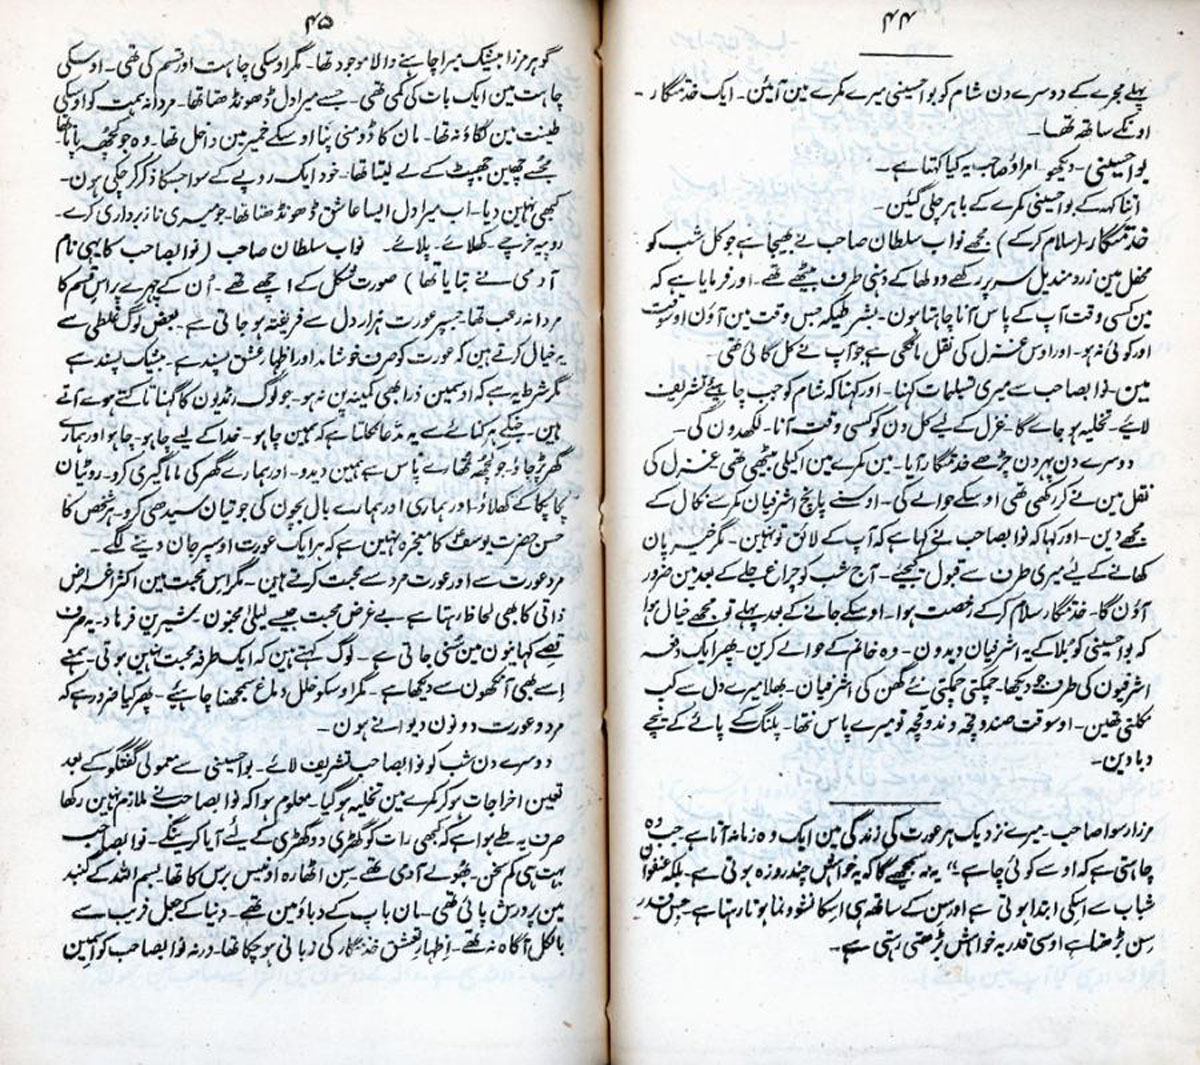 ۴۴
پہلے مجرے کے دوسرے دن شام کو بوا حسینی میرے کمرے مین آئین۔ ایک خدمتگار
اونکے ساتھ تھا۔
بوا حسینی۔ دیکھو۔ امراؤ صاحب یہ کیا کہتا ہے۔
اتنا کہہ کے بوا حسینی کمرے کے باہر چلی گئین۔
خدمتگار۔ (سلام کرکے) مجھے نواب سلطان صاحب نے بھیجا ہے جو کل شب کو
محفل مین زرد مندیل سر پر رکھے دولھا کے دہنی طرف بیٹھے تھے۔ اور فرمایا ہے کہ
مین کسی وقت آپ کے پاس آنا چاہتا ہون۔ بشرطیکہ جس وقت مین آؤن اوسوقت
اور کوئی نہ ہو۔ اور اوس غزل کی نقل مانگی ہے جو آپ نے کل گائی تھی۔
مین۔ نواب صاحب سے میری تسلیمات کہنا۔ اور کہنا کہ شام کو جب چاہیئے تشریف
لائیے۔ تخلیہ ہو جائے گا۔ غزل کے لیے کل دن کو کسی وقت آنا۔ لکھدون گی۔
دوسرے دن پہر دن چڑھے خدمتگار آیا۔ مین کمرے مین اکیلی بیٹھی تھی غزل کی
نقل مین نے کر رکھی تھی اوسکے حوالے کی۔ اوسنے پانچ اشرفیان کمر سے نکال کے
مجھے دین۔ اور کہا کہ نواب صاحب نے کہا ہے کہ آپ کے لائق تو نہین۔ مگر خیر پان
کھانے کے لیئے میری طرف سے قبول کیجئے۔ آج شب کو چراغ جلے کے بعد مین ضرور
آؤن گا۔ خدمتگار سلام کرکے رخصت ہوا۔ اوسکے جانے کے بعد پہلے تو مجھے خیال ہوا
کہ بوا حسینی کو بلا کے یہ اشرفیان دیدون۔ وہ خانم کے حوالے کرین۔ پھر ایک دفعہ
اشرفیون کی طرف جو دیکھا۔ چمکتی چمکتی نئے گھن کی اشرفیان۔ بھلا میرے دل سے کب
نکلتی تھین۔ اوسوقت صندوقچہ وندوقچہ تو میرے پاس نتھا۔ پلنگ کے پائے کے نیچے
دبا دین۔
مرزا رسوا صاحب۔ میرے نزدیک ہر عورت کی زندگی مین ایک وہ زمانہ آتا ہے جب وہ
چاہتی ہے کہ اوسے کوئی چاہے۔“ یہ نہ سمجھیے گا کہ یہ خواہش چند روزہ ہوتی ہے۔ بلکہ عنفوان
شباب سے اسکی ابتدا ہوتی ہے اور سن کے ساتھ ہی اسکا نشو و نما ہوتا رہتا ہے۔ جس قدر
سن بڑھتا ہے اوسی قدر یہ خواہش بڑھتی رہتی ہے۔
۴۵
گوہر مرزا بیشک میرا چاہنے والا موجود تھا۔ مگر اوسکی چاہت اور قسم کی تھی۔ اوسکی
چاہت مین ایک بات کی کمی تھی۔ جسے میرا دل ڈھونڈھتا تھا۔ مردانہ ہمت کو اوسکی
طینت مین لگاؤ نہ تھا۔ مان کا ڈومنی پنا اوسکے خمیر مین داخل تھا۔ وہ جو کچھ پاتا تھا
مجھے چھین جھپٹ کے لے لیتا تھا۔ خود ایک روپے کے سوا جسکا ذکر کر چکی ہون۔
کبھی نہین دیا۔ اب میرا دل ایسا عاشق ڈھونڈھتا تھا۔ جو میری ناز برداری کرے۔
روپیہ خرچے۔ کھلائے۔ پلائے۔ نواب سلطان صاحب (نواب صاحب کا یہی نام
آدمی نے بتایا تھا) صورت شکل کے اچھے تھے۔ اُن کے چہرے پر اس قسم کا
مردانہ رعب تھا۔ جسپر عورت ہزار دل سے فریفتہ ہو جاتی ہے۔ بعض لوگ غلطی سے
یہ خیال کرتے ہین کہ عورت کو صرف خوشامد اور اظہار عشق پسند ہے۔ بیشک پسند ہے
مگر شرط یہ ہے کہ اوسمین ذرا بھی کمینہ پن نہ ہو۔ جو لوگ رنڈیون کا گہنا تاکتے ہوے آتے
ہین۔ جنکے ہر کنائے سے یہ مدّعا نکلتا ہے کہ ہمین چاہو۔ خدا کے لیے چاہو۔ چاہو اور ہمارے
گھر پڑ جاؤ۔ جو کچھ تمھارے پاس ہے ہمین دیدو۔ اور ہمارے گھر کی ماماگیری کرو۔ روٹیان
پکا پکا کے کھلاؤ۔ اور ہماری اور ہمارے بال بچون کی جوتیان سیدھی کرو۔ ہر شخص کا
حسن حضرت یوسفؑ کا معجزہ نہین ہے کہ ہر ایک عورت اوسپر جان دینے لگے۔
مرد عورت سے اور عورت مرد سے محبت کرتے ہین۔ مگر اس محبت مین اکثر اغراض
ذاتی کا بھی لحاظ رہتا ہے۔ بے غرض محبت جیسے لیلیٰ مجنون۔ شیرین فرہاد۔ یہ صرف
قصے کہانیون مین سُنی جاتی ہے۔ لوگ کہتے ہین کہ ایک طرفہ محبت نہین ہوتی۔ ہمنے
اسے بھی آنکھون سے دیکھا ہے۔ مگر اوسکو خلل دماغ سمجھنا چاہئیے۔ پھر کیا ضرور ہے کہ
مرد و عورت دونون دیوانے ہون۔
دوسرے دن شب کو نواب صاحب تشریف لائے۔ بوا حسینی سے معمولی گفتگو کے بعد
تعین اخراجات ہو کر کمرے مین تخلیہ ہو گیا۔ معلوم ہوا کہ نواب صاحب نے ملازم نہین رکھا
صرف یہ طے ہوا ہے کہ کبھی رات کو گھڑی دو گھڑی کے لیئے آیا کرینگے۔ نواب صاحب
بہت ہی کم سخن۔ بھولے آدمی تھے۔ سِن اٹھارہ اونیس برس کا تھا۔ بسم اللہ کے گنبد
مین پرورش پائی تھی۔ مان باپ کے دباؤ مین تھے۔ دنیا کے جعل فریب سے
بالکل آگاہ نہ تھے۔ اظہار عشق خدمتگار کی زبانی ہو چکا تھا۔ ورنہ نواب صاحب کو اسمین